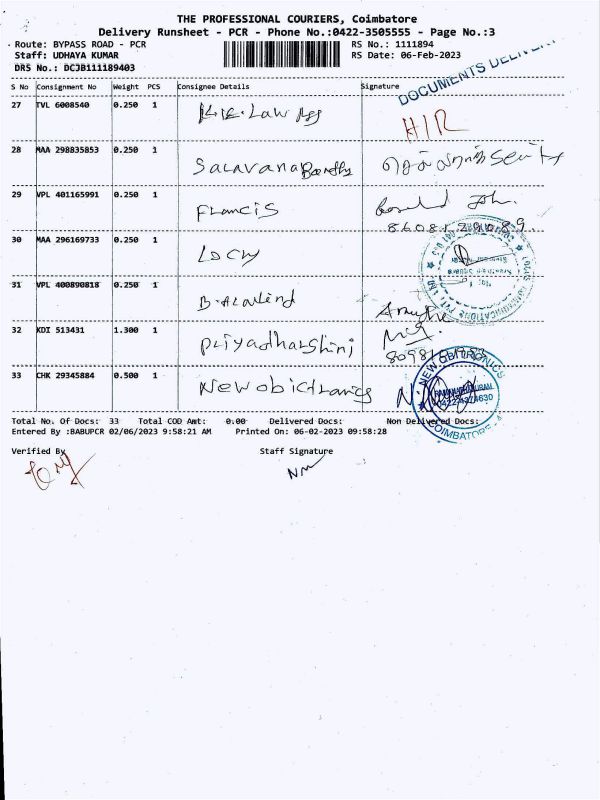 THE PROFESSIONAL COURIERS, Coimbatore
Delivery Runsheet - PCR - Phone No.:0422-3505555 - Page No.:3
Route: BYPASS ROAD - PCR
RS No.: 1111894
Staff: UDHAYA KUMAR
RS Date: 06-Feb-2023
DRS No.: DCJB111189403
S No Consignment No Weight PCS Consignee Details Signature
DOCUMENTS DELIVERY
27 TVL 6008540 0.250 1 Law
28 MAA 298835853 0.250 1 Saravana
29 VPL 401165991 0.250 1 Francis
30 MAA 296169733 0.250 1
31 VPL 400890818 0.250 1
32 KDI 513431 1.300 1 Priyadharshini
33 CHK 29345884 0.500 1
NEW OBITRONICS
COIMBATORE
Total No. Of Docs: 33 Total COD Amt: 0.00 Delivered Docs: Non Delivered Docs:
Entered By :BABUPCR 02/06/2023 9:58:21 AM Printed On: 06-02-2023 09:58:28
Verified By
Staff Signature